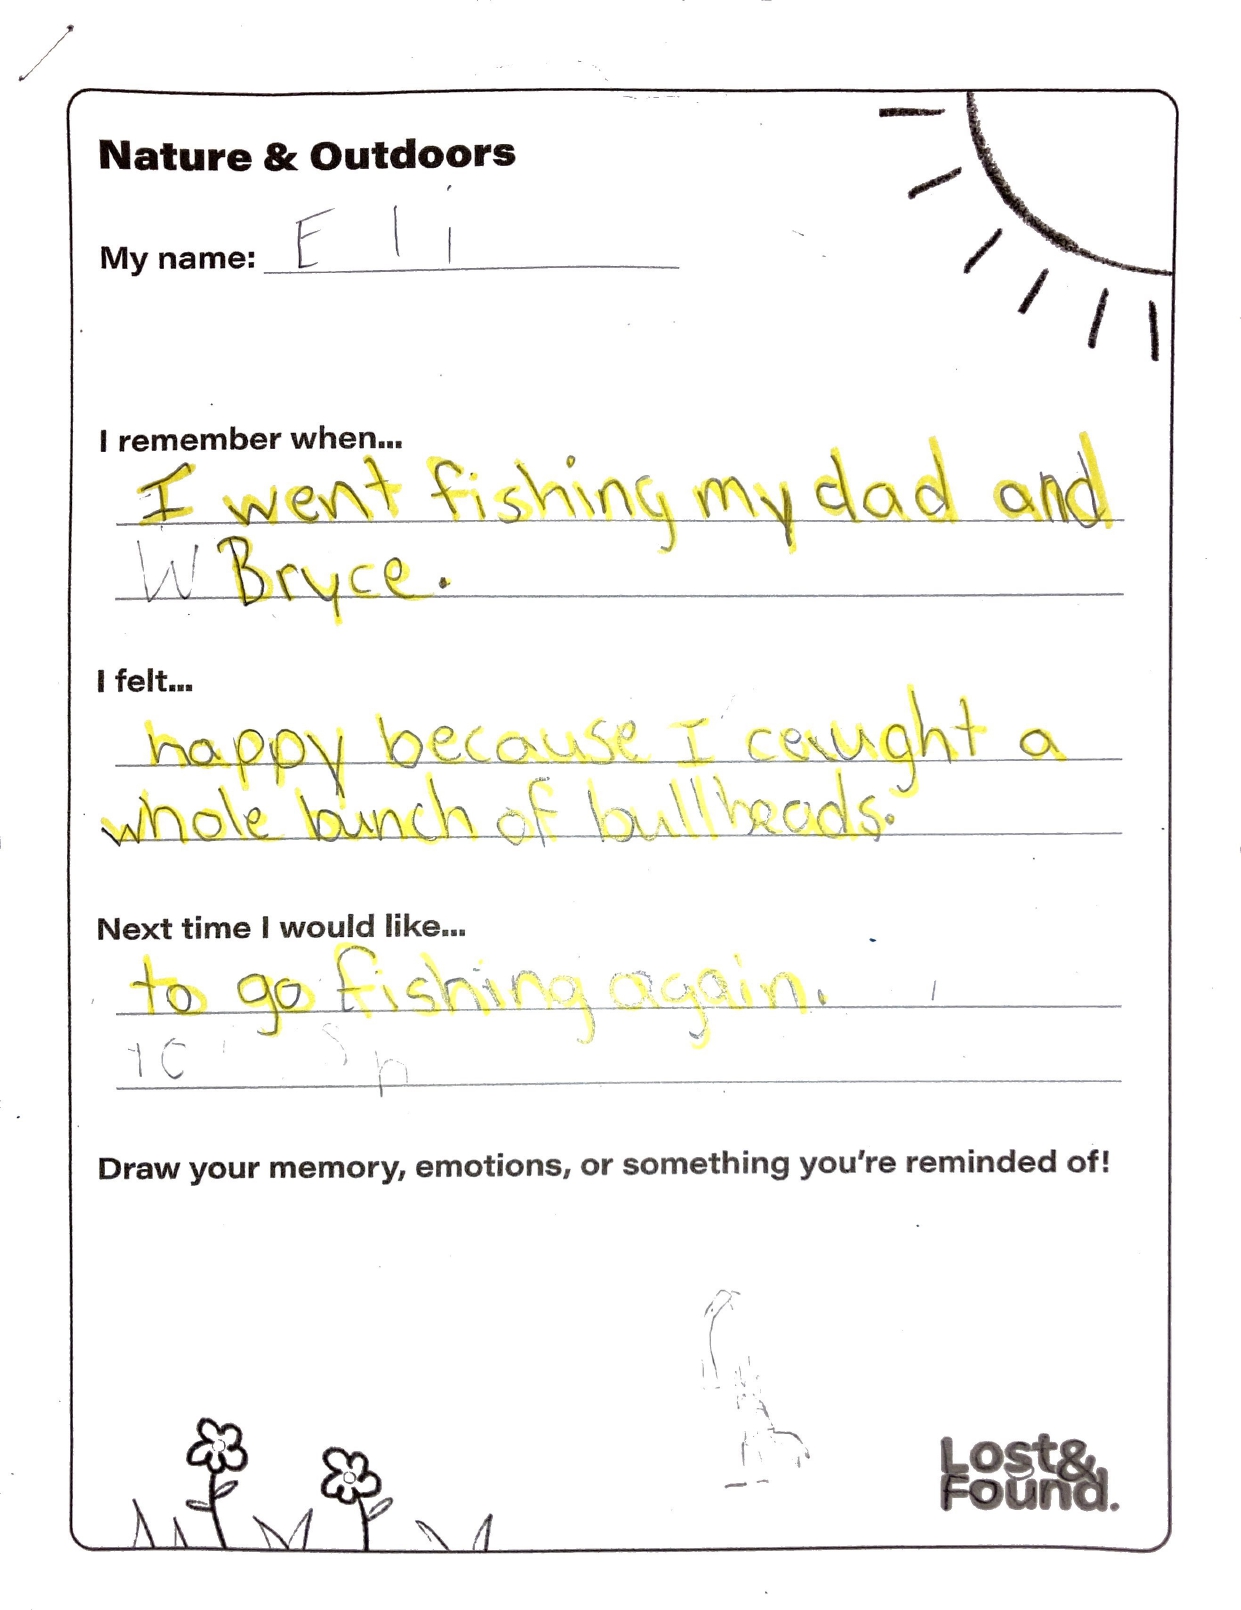 Nature & Outdoors
My name: Eli
I remember when...
I went fishing my dad and
W Bryce.
I felt...
happy because I caught a
whole bunch of bullheads.
Next time I would like...
to go fishing again.
Draw your memory, emotions, or something you're reminded of!
Lost&
Found.